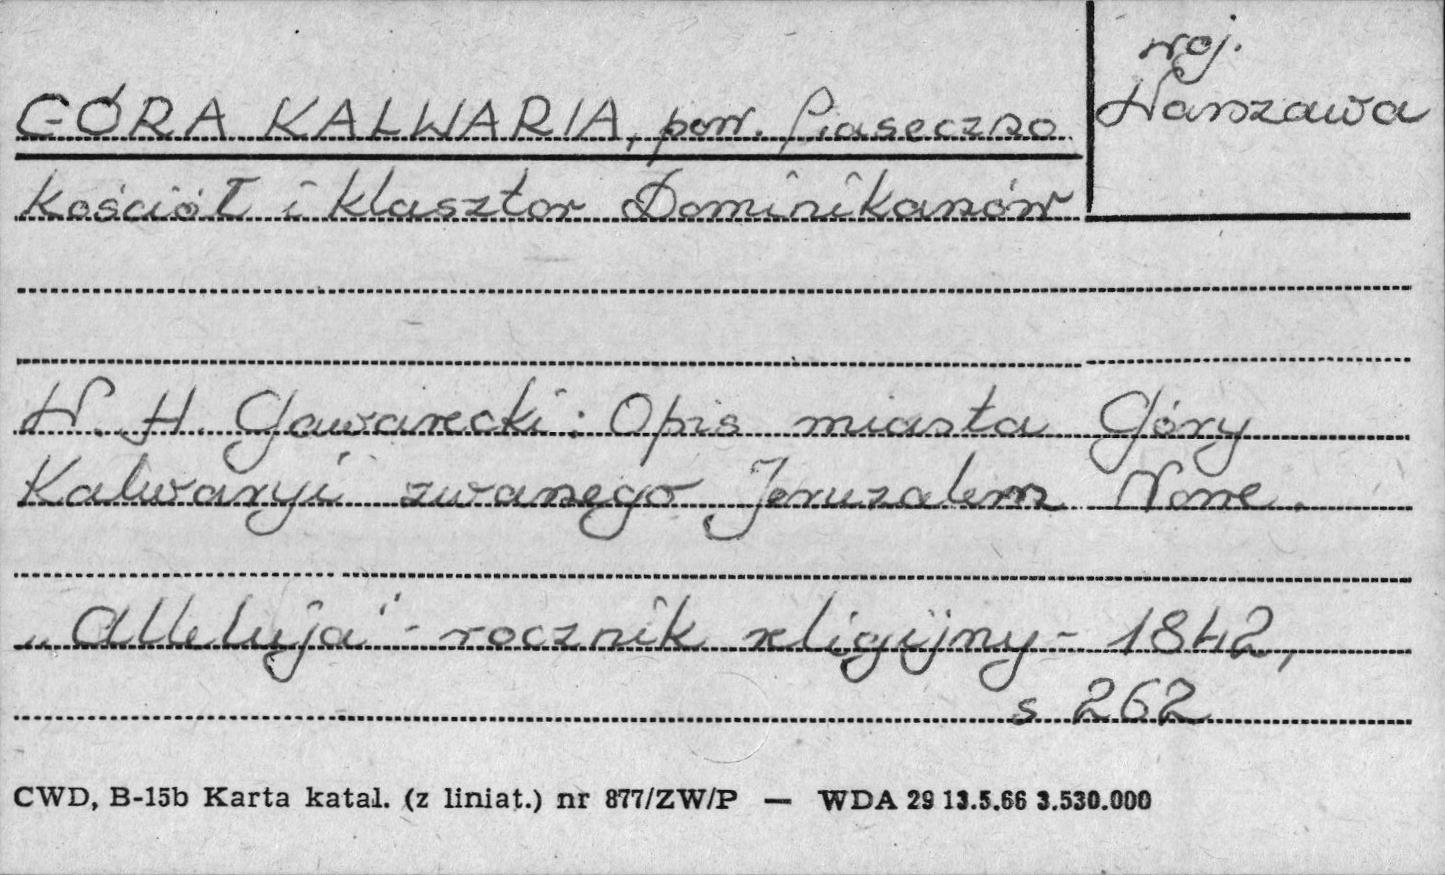 GÓRA KALWARIA, pow. Piaseczno
woj.
Warszawa
Kościół i klasztor Dominikanów
W. H. Gawarecki: Opis miasta Góry
Kalwaryi zwanego Jeruzalem Nowe.
„Alleluja" - rocznik religijny - 1842,
s 262
CWD, B-15b Karta katal. (z liniat.) nr 877/ZW/P — WDA 29 13.5.66 3.530.000